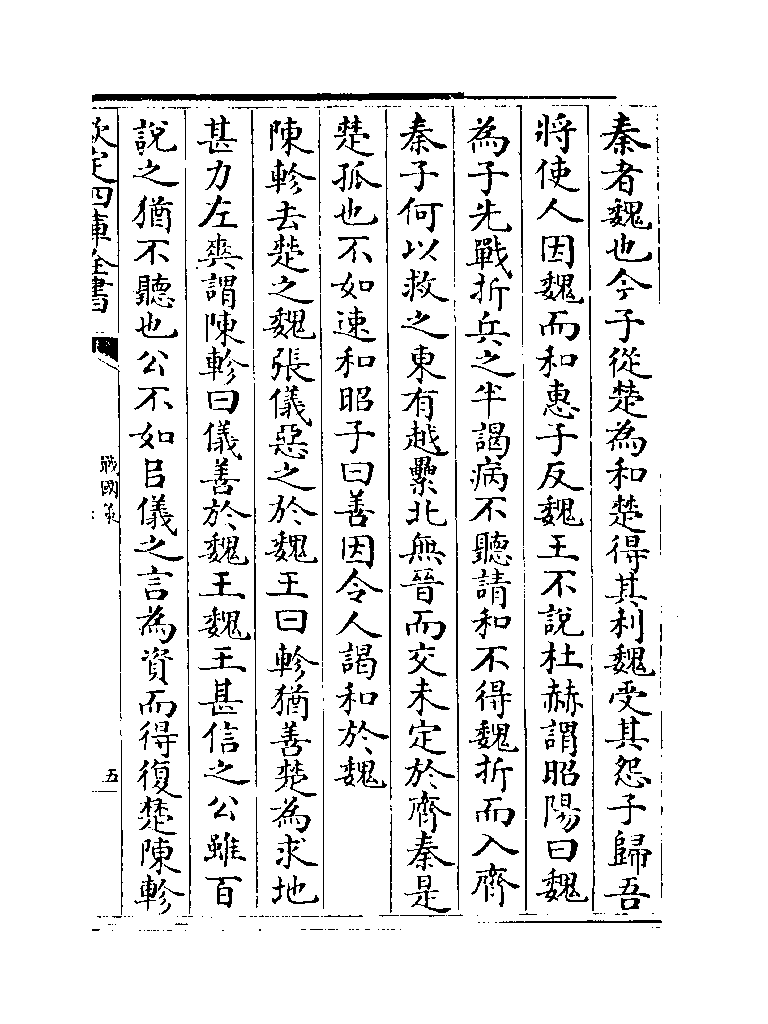 秦者魏也今子從楚為和楚得其利魏受其怨子歸吾
將使人因魏而和惠子反魏王不說杜赫謂昭陽曰魏
為子先戰折兵之半謁病不聽請和不得魏折而入齊
秦子何以救之東有越纍北無晉而交未定於齊秦是
楚孤也不如速和昭子曰善因令人謁和於魏
陳軫去楚之魏張儀惡之於魏王曰軫猶善楚為求地
甚力左爽謂陳軫曰儀善於魏王魏王甚信之公雖百
說之猶不聽也公不如㠯儀之言為資而得復楚陳軫
欽定四庫全書
戰國策
五